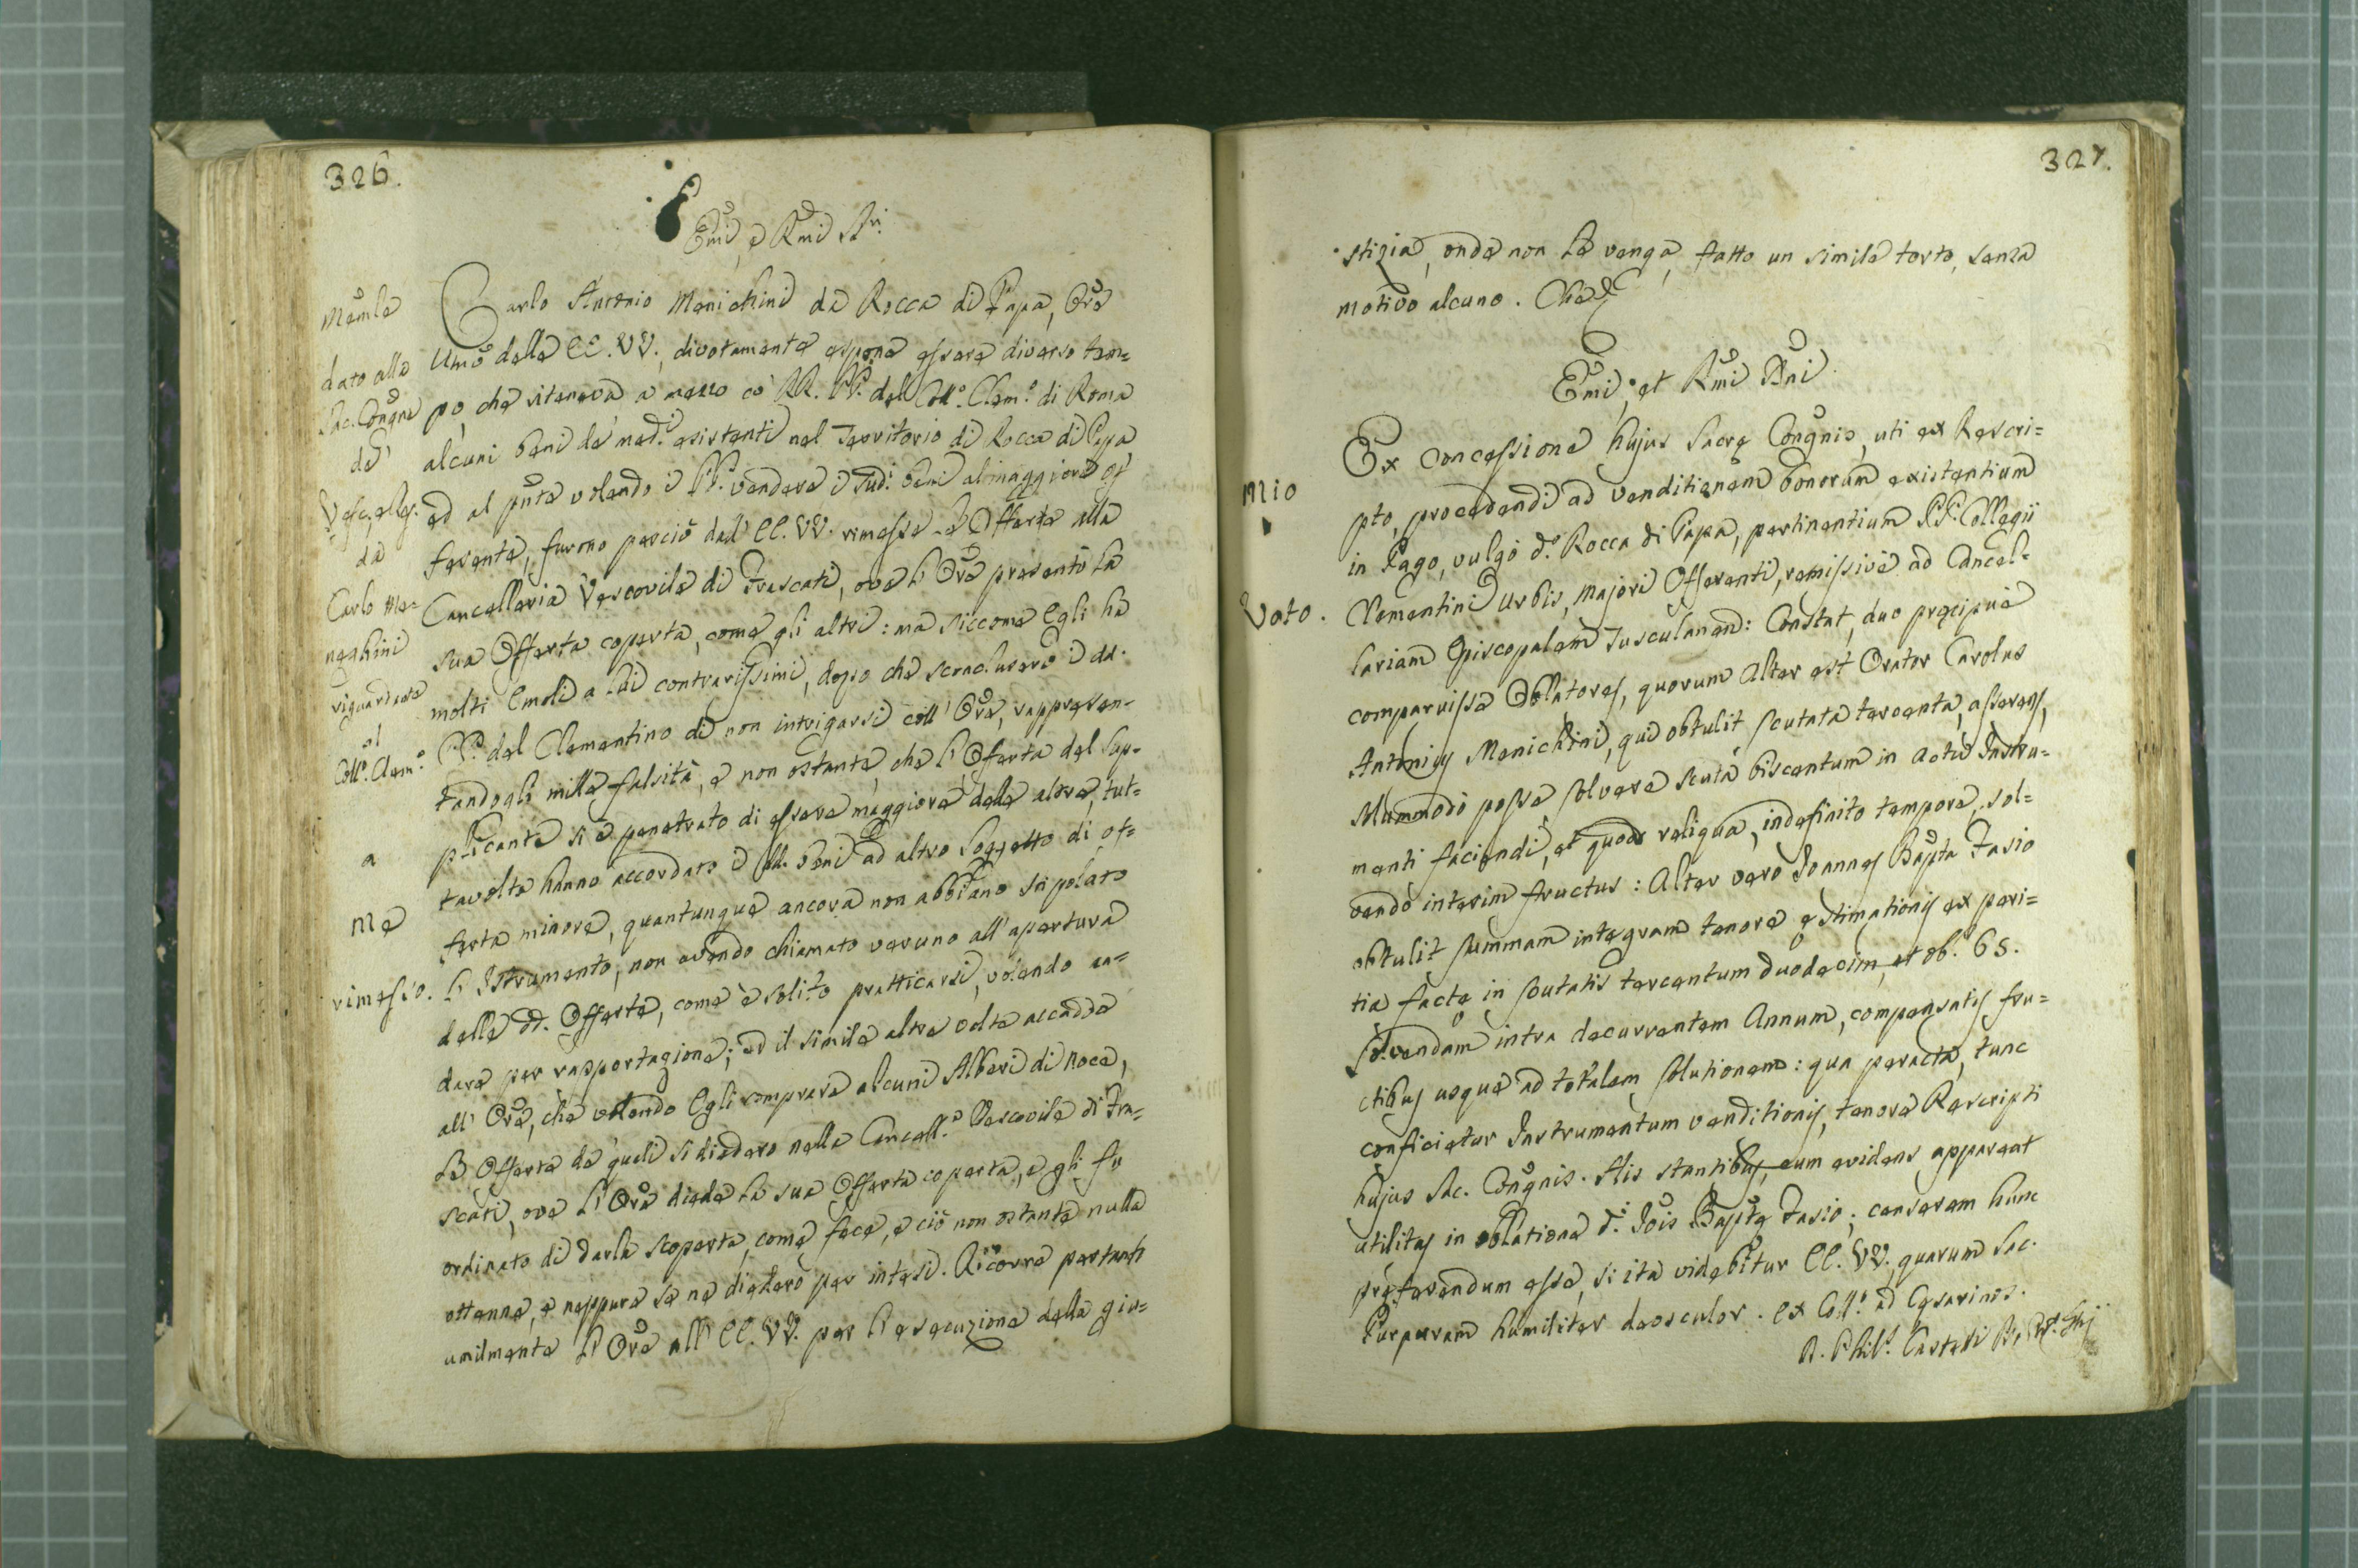 326.
Emi, e Rmi Sri.
Memle
dato alla
Sac. Congne
de'
Vesc. e Reg.
da
Carlo Me-
neghini
riguardare
al
Coll.º Clem.º
a
Me
rimesso.
Carlo Antonio Menichini da Rocca di Papa, Ore
Umo delle EE. VV., divotamente espone essere diverso tem=
po, che riteneva a mezzo co' RR. PP. del Coll.º Clem.º di Roma
alcuni beni de' med.i esistenti nel Territorio di Rocca di Papa
ed al pnte volendo i PP. vendere i sud.i beni al maggiore of=
ferente, furono perciò dall' EE. VV. rimesse le Offerte alla
Cancelleria Vescovile di Frascati, ove l' Ore presentò la
sua Offerta coperta, come gli altri: ma siccome Egli ha
molti Emoli a lui contrarissimi, dopo che sconclusero i dd.
PP. del Clementino di non intrigarsi coll' Ore, rappresen-
tandogli mille falsità, e non ostante, che l' Offerta del Sup-
plicante si è penetrato di essere maggiore delle altre, tut=
tavolta hanno accordato i dd. beni ad altro Soggetto di of=
ferta minore, quantunque ancora non abbiano stipolato
l' Istrumento, non avendo chiamato veruno all' apertura
delle dd. Offerte, come è solito pratticarsi, volendo an=
dare per rapportazione; ed il simile altra volta accadde
all' Ore, che volendo Egli comprare alcuni Alberi di Noce,
le Offerte de' queli si diedero nella Cancell.ª Vescovile di Fra=
scati, ove l' Ore diede la sua Offerta coperta, e gli fu
ordinato di darla scoperta, come fece, e ciò non ostante nulla
ottenne, e neppure se ne diedero per intesi. Ricorre pertanto
umilmente l' Ore all' EE. VV. per l' esecuzione della giu=
327.
stizia, onde non le venga fatto un simile torto, senza
motivo alcuno. Che
Emi, et Rmi Dni
Mio
Voto.
Ex concessione hujus Sacrę Congnis, uti ex Rescri=
pto, procedendi ad venditionem bonorum existentium
in Pago, vulgo d.º Rocca di Papa, pertinentium PP. Collegii
Clementini Urbis, majori Offerenti, remissive ad Cancel-
lariam Episcopalem Tusculanam: Constat, duo pręcipue
comparuisse Oblatores, quorum Alter est Orator Carolus
Antonius Menichini, qui obtulit scutata tercenta, asserens,
Solummodo posse solvere scuta biscentum in actu Instru=
menti faciendi, et quod reliqua, indefinito tempore, sol=
vendo interim fructus: Alter vero Joannes Bapta Fasio
obtulit summam integram tenore ęstimationis ex peri=
tia factę in scutatis tercentum duodecim, et ob. 65.
solvendam intra decurrentem Annum, compensatis fru=
ctibus usque ad totalem solutionem: qua peracta, tunc
conficietur Instrumentum venditionis, tenore Rescripti
hujus Sac. Congnis. His stantibus, cum evidens appareat
utilitas in oblatione d.i Jois Baptę Fasio; censerem hunc
pręferendum esse, si ita videbitur EE. VV. quarum Sac.
Purpuram humiliter deosculor. Ex Coll.º ad Cęsarinos.